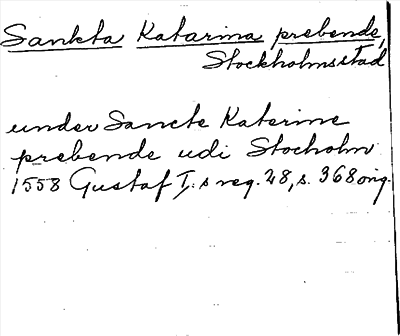 Sankta Katarina prebende,
Stockholms stad
under Sancte Katerine
prebende udi Stocholm
1558 Gustaf I:s reg. 28, s. 368 orig.